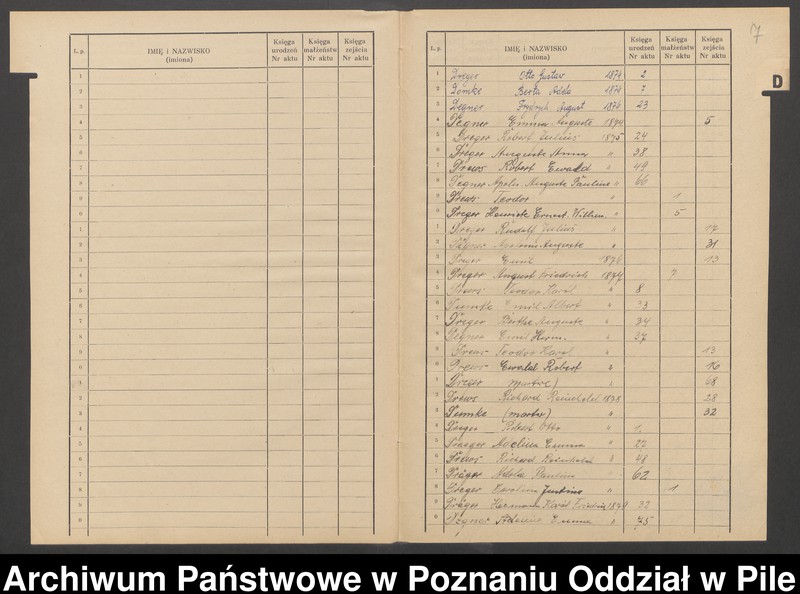 L. p. IMIĘ i NAZWISKO (imiona) Księga urodzeń Nr aktu Księga małżeństw Nr aktu Księga zejścia Nr aktu
7
L. p. IMIĘ i NAZWISKO (imiona) Księga urodzeń Nr aktu Księga małżeństw Nr aktu Księga zejścia Nr aktu
D
1 Dreger Otto Gustav 1874 2
2 Domke Berta Adela 1874
3 Degner Fryderyk August 1876 23
4 Degner Emma Auguste 1874 5
5 Dreger Robert Julius 1875 24
6 Dreger Auguste Anna " 38
7 Drews Robert Ewald " 49
8 Degner Auguste Pauline " 66
9 Drews Teodor " 1
0 Dreger Ernest Wilhem. " 5
1 Dreger Rudolf Julius " 17
2 Auguste " 31
3 Dreger Emil 1876 13
4 Dreger August Friedrich 1877 7
5 Drews Teodor Karol " 8
6 Emil Albert "
7 Dreger Berthe Auguste " 34
8 Degner Emil Herm. " 37
9 Drews Teodor Karol " 13
0 Drews Ewald Robert "
1 Dreger (martwe) " 68
2 Drews Richard Reinhold 1878 28
3 Demke (martwe) " 32
4 Dreger Robert Otto " 1
5 Draeger Adeline Emma "
6 Drews Richard Reinhold " 48
7 Dräger Adela Pauline " 62
8 Dreger Karolina Justine " 1
9 Dräger Hermann Karol Friedrich 1879
0 Degner Adeline Emma " 75
Archiwum Państwowe w Poznaniu Oddział w Pile